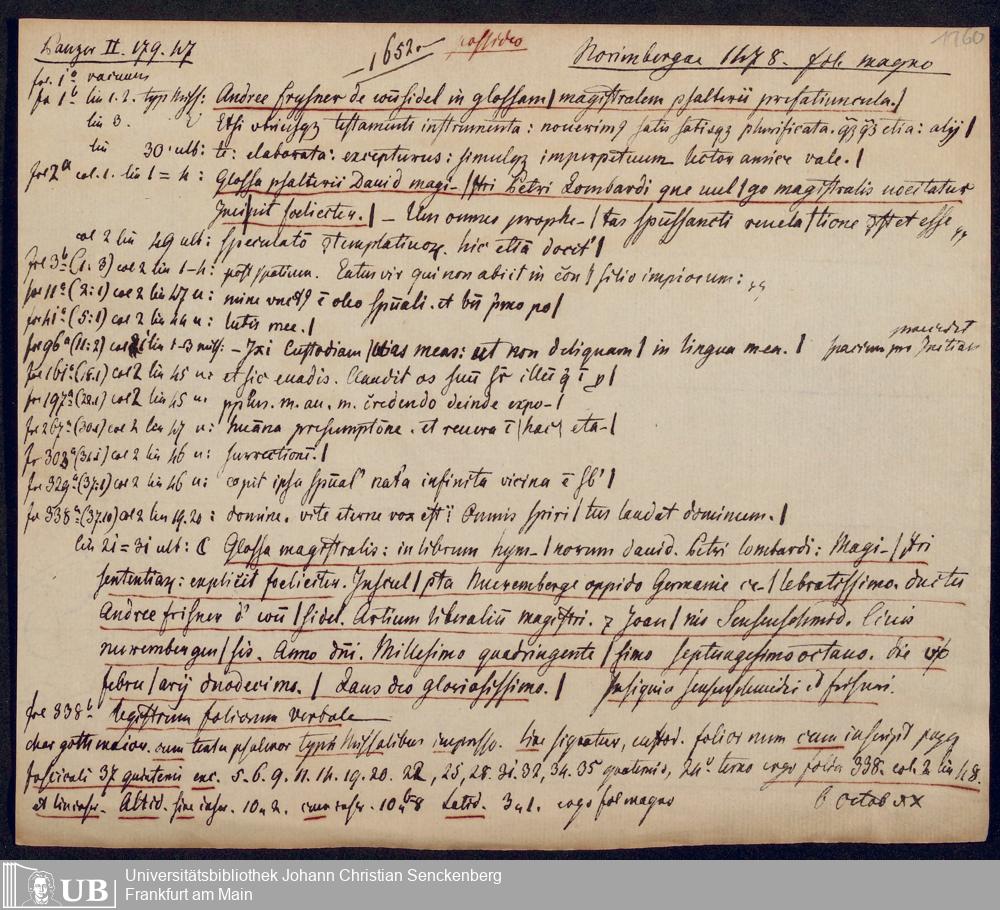 Panzer II. 179. 47 1652. possideo Norimbergae 1478. fol. magno 1760
fol. 1a vacuum
fo 1b lin 1. 2. typ. Miss: Andree frysner de wūsidel in glossam | magistralem psalterii prefatiuncula. |
lin 3. Etsi vtriusqz testamenti instrumenta: nouerimꝰ satis satisqz plurificata. etia: alij |
lin 30. ult: te: elaborata: excepturus: simulqz imperpetuum hortor amice vale. |
fol 2a col. 1. lin 1 = 4: Glossa psalterii Dauid magi- | stri Petri Lombardi que uul | go magistralis nocitatur
Incipit foeliciter. | – Um omnes prophe- | tas spussancti reuela | tione et esse
col 2 lin 49 ult: speculatō templatiuoꝝ. hic etiā docet |
fol 3b (1: 3) col 2 lin 1-4: post spatium. Eatus vir qui non abiit in cōn | silio impiorum:
fol 11a (2: 1) col 2 lin 47 u: mine ī oleo spūali. et bn̄ pmo po |
fo 41a (5: 1) col 2 lin 44 u: lutis mee. |
fol 96a (11: 2) col 2 lin 1-3 miss: – Ixi Custodiam | uias meas: ut non delinquam | in lingua mea. | praecedit
spacium pro Initiali
fol 161a (18.1) col 2 lin 45 u: et sic euadis. Claudit os suū
fo 197a (22.1) col 2 lin 45 u. m. au. m. credendo deinde expo- |
fo 267a (30.1) col 2 lin 47 u: humāna presumptōne. et reuera ī hac eta- |
fo 303a (34:1) col 2 lin 46 u: surrectioni. |
fol 329a (37:1) col 2 lin 46 u: cepit ipsa spūal' nata infinita vicina ē |
fo 338a (37.10) col 2 lin 19. 20: domine. vite eterne vox est: Omnis spiri | tus laudat dominum. |
lin 21 = 31 ult: C Glossa magistralis: in librum hym- | norum dauid. Petri lombardi: Magi- | stri
sententiaꝝ: explicit foeliciter. Inscul | pta Nuremberge oppido Germanie ce- | lebratissimo. ductu
Andree frisner d' wū | sidel. Artium liberaliū magistri. ⁊ Joan | nis Sensenschmid. Ciuis
nurembergen | sis. Anno dn̄i. Millesimo quadringente | simo septuagesimooctauo. die vo
febru | arij duodecimo. | Laus deo gloriosissimo. | Insignia Sensenschmidii et frisneri.
fol 338b Registrum foliorum verbale
char. goth. maior. cum textu psalmor typis Missalibus impresso. sine signatur, custod. folior num cum inscript pagg
fascicali 37 quinterni exc. 5. 6. 9. 11. 14. 19. 20. 22, 25, 28. 31. 32, 34. 35 quaternis, 24 terno ergo folia 338. col. 2 lin 48.
et lin inser. Altid. sine inser. 10 u 2. cum inser. 10 u 8 Latid. 3 u 1. ergo fol magno 6 Octob xx
UB Universitätsbibliothek Johann Christian Senckenberg
Frankfurt am Main